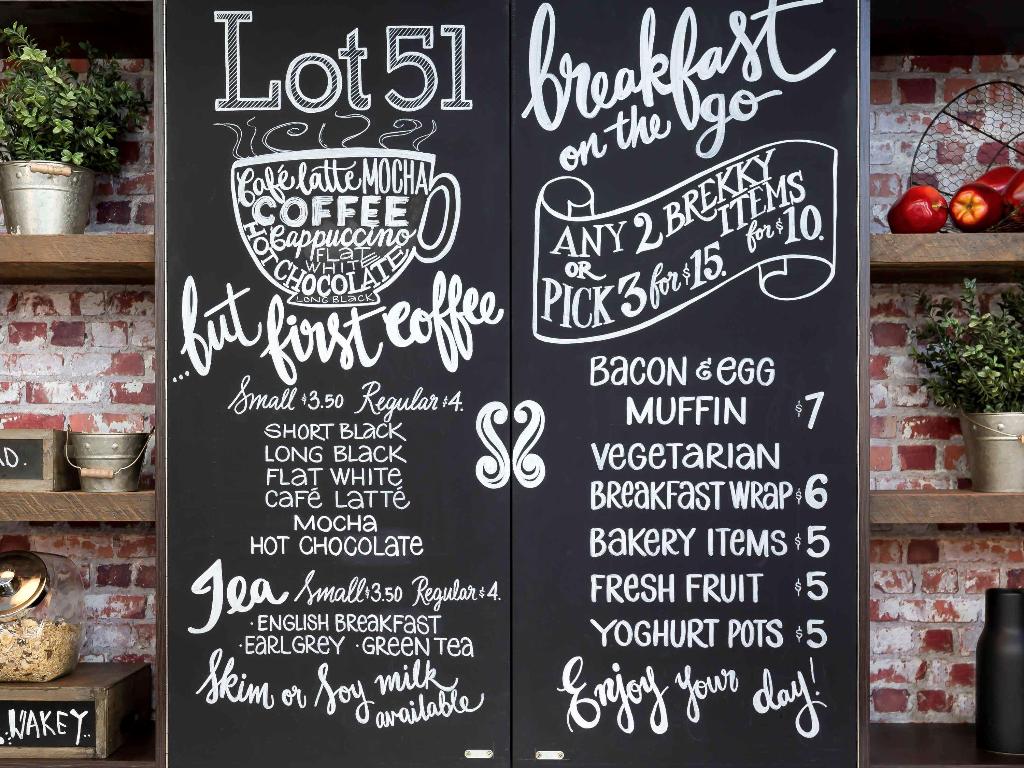 Lot 51
Café latte MOCHA
COFFEE
Cappuccino
FLAT
WHITE
HOT CHOCOLATE
LONG BLACK
...but first coffee
Small $3.50 Regular $4.
SHORT BLACK
LONG BLACK
FLAT WHITE
CAFÉ LATTÉ
MOCHA
HOT CHOCOLATE
Tea Small $3.50 Regular $4.
·ENGLISH BREAKFAST
·EARL GREY ·GREEN TEA
Skim or Soy milk
available
breakfast
on the go
ANY 2 BREKKY
ITEMS
for $10.
OR
PICK 3 for $15.
BACON & EGG
MUFFIN $7
VEGETARIAN
BREAKFAST WRAP $6
BAKERY ITEMS $5
FRESH FRUIT $5
YOGHURT POTS $5
Enjoy your day!
WAKEY